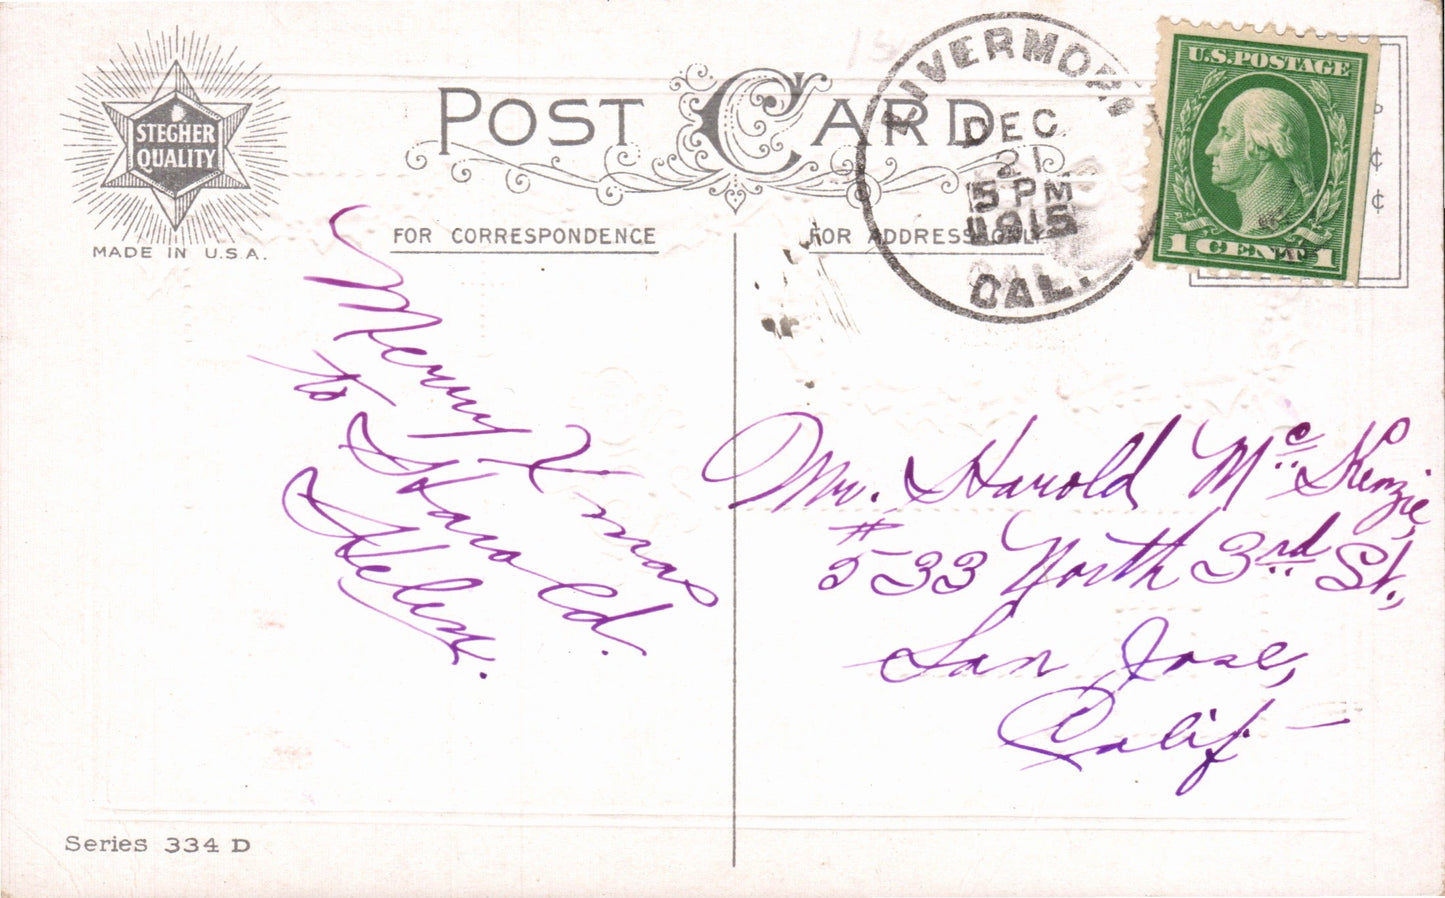 STEGHER
QUALITY
MADE IN U.S.A.
POST CARD
FOR CORRESPONDENCE
FOR ADDRESS ONLY
LIVERMORE
DEC
21
5 PM
1915
CAL.
U.S. POSTAGE
1 CENT 1
¢
¢
Merry Xmas
to Harold.
Helen.
Mr. Harold McKenzie,
#533 North 3rd St.,
San Jose,
Calif –
Series 334 D